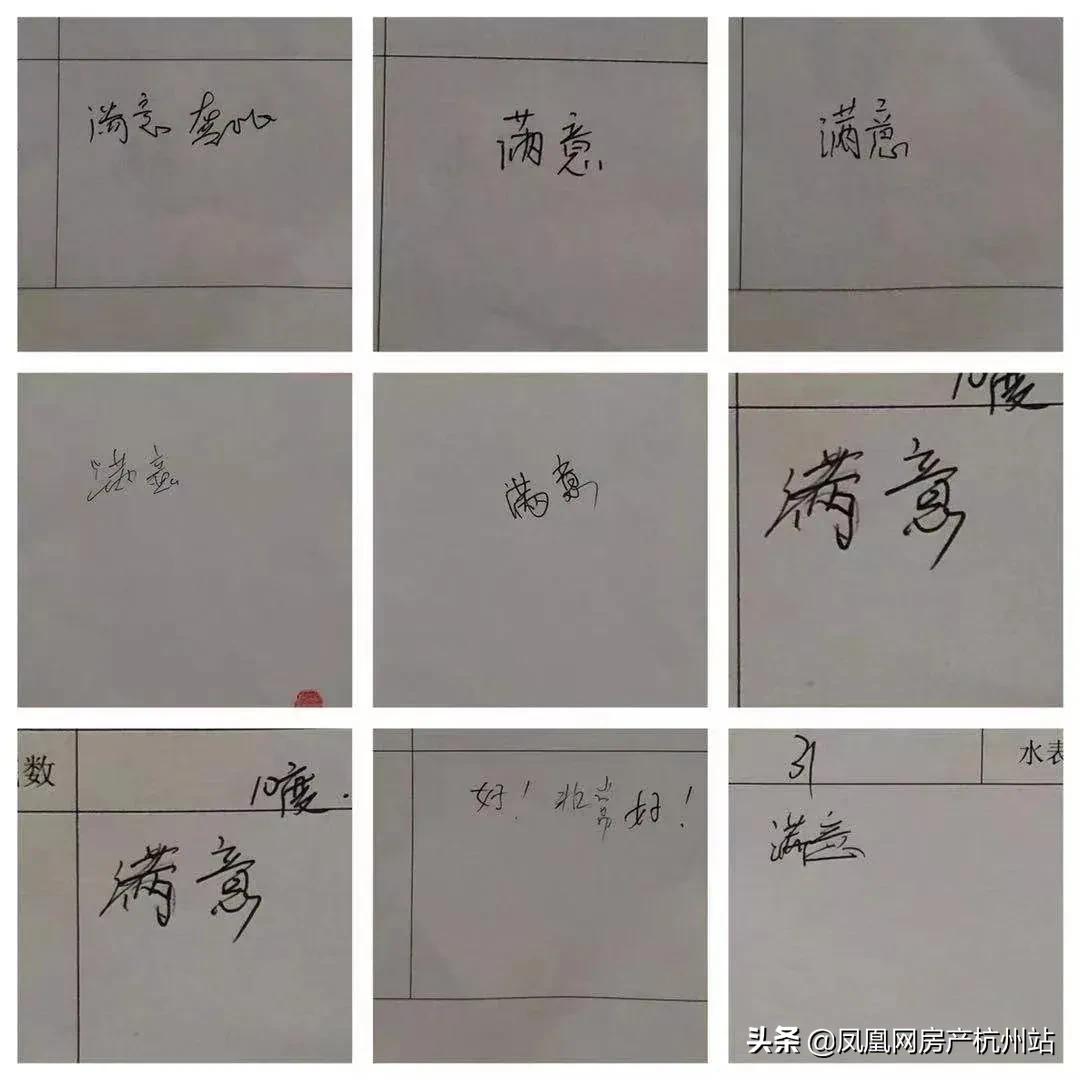 满意
满意
满意
满意
满意
10度
满意
数
10度.
满意
好！非常好！
31
水表
满意
头条 @凤凰网房产杭州站